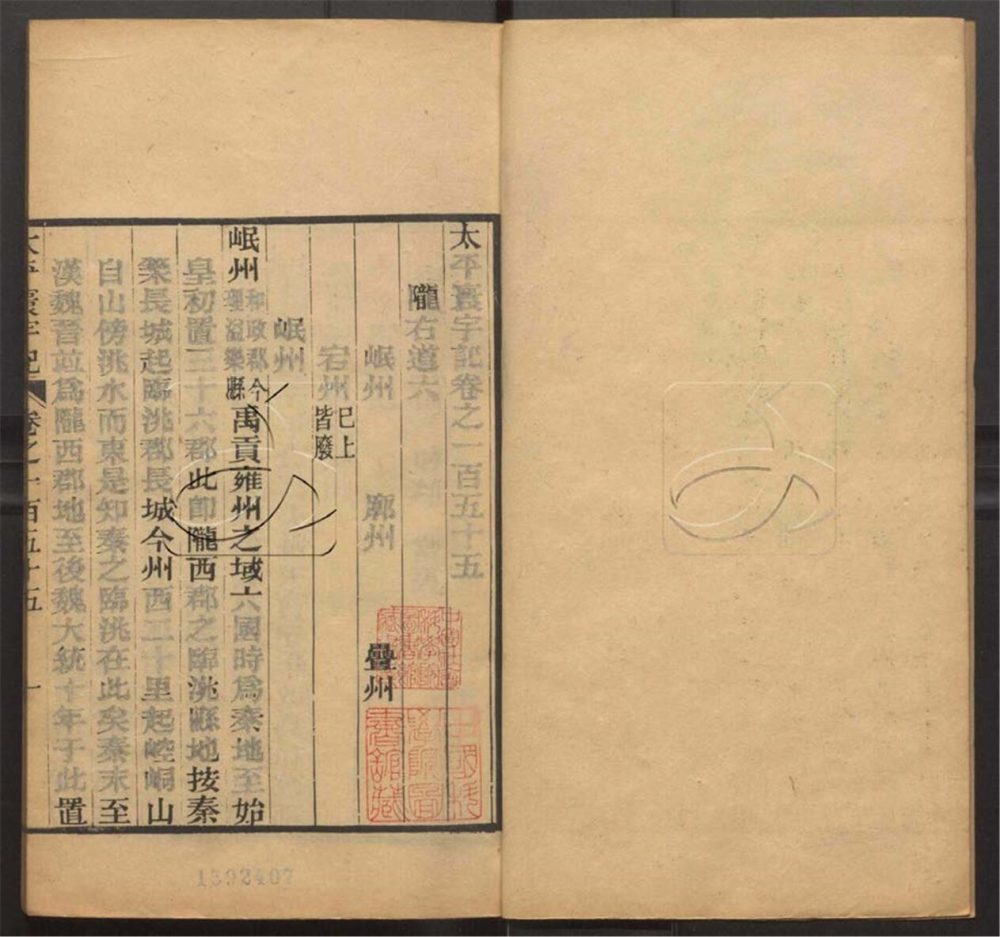 太平寰宇記卷之一百五十五
隴右道六
岷州　廓州　疊州
宕州 已上皆廢
岷州
岷州 和政郡今理溢樂縣 禹貢雍州之域六國時爲秦地至始
皇初置三十六郡此卽隴西郡之臨洮縣地按秦
築長城起臨洮郡長城今州西二十里起崆峒山
自山傍洮水而東是知秦之臨洮在此矣秦末至
漢魏晉竝爲隴西郡地至後魏大統十年于此置
太平寰宇記 卷之一百五十五 一
1392407